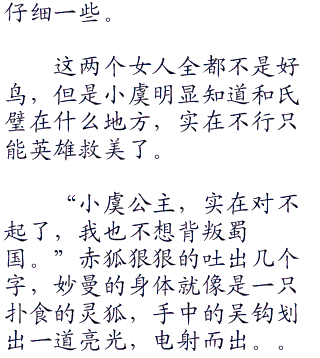 仔细一些。
这两个女人全都不是好
鸟，但是小虞明显知道和氏
璧在什么地方，实在不行只
能英雄救美了。
“小虞公主，实在对不
起了，我也不想背叛蜀
国。”赤狐狠狠的吐出几个
字，妙曼的身体就像是一只
扑食的灵狐，手中的吴钩划
出一道亮光，电射而出。。